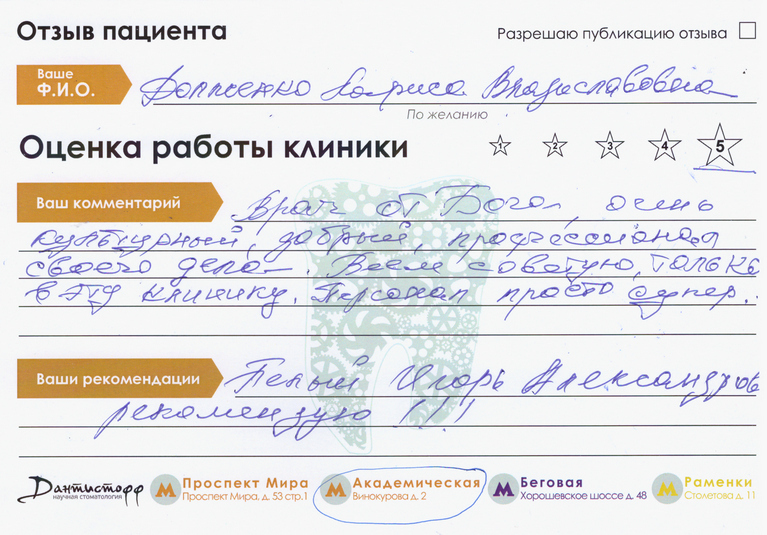 Отзыв пациента
Разрешаю публикацию отзыва
Ваше Ф.И.О.
Долженко Лариса Владиславовна
По желанию
Оценка работы клиники 1 2 3 4 5
Ваш комментарий Врач от Бога, очень
культурный, добрый, профессионал
своего дела. Всем советую, только
в эту клинику. Персонал просто супер.
Ваши рекомендации Пелый Игорь Александров
рекомендую !!!!
Дантистофф
научная стоматология
М Проспект Мира
Проспект Мира, д. 53 стр.1
М Академическая
Винокурова д. 2
М Беговая
Хорошевское шоссе д. 48
М Раменки
Столетова д. 11